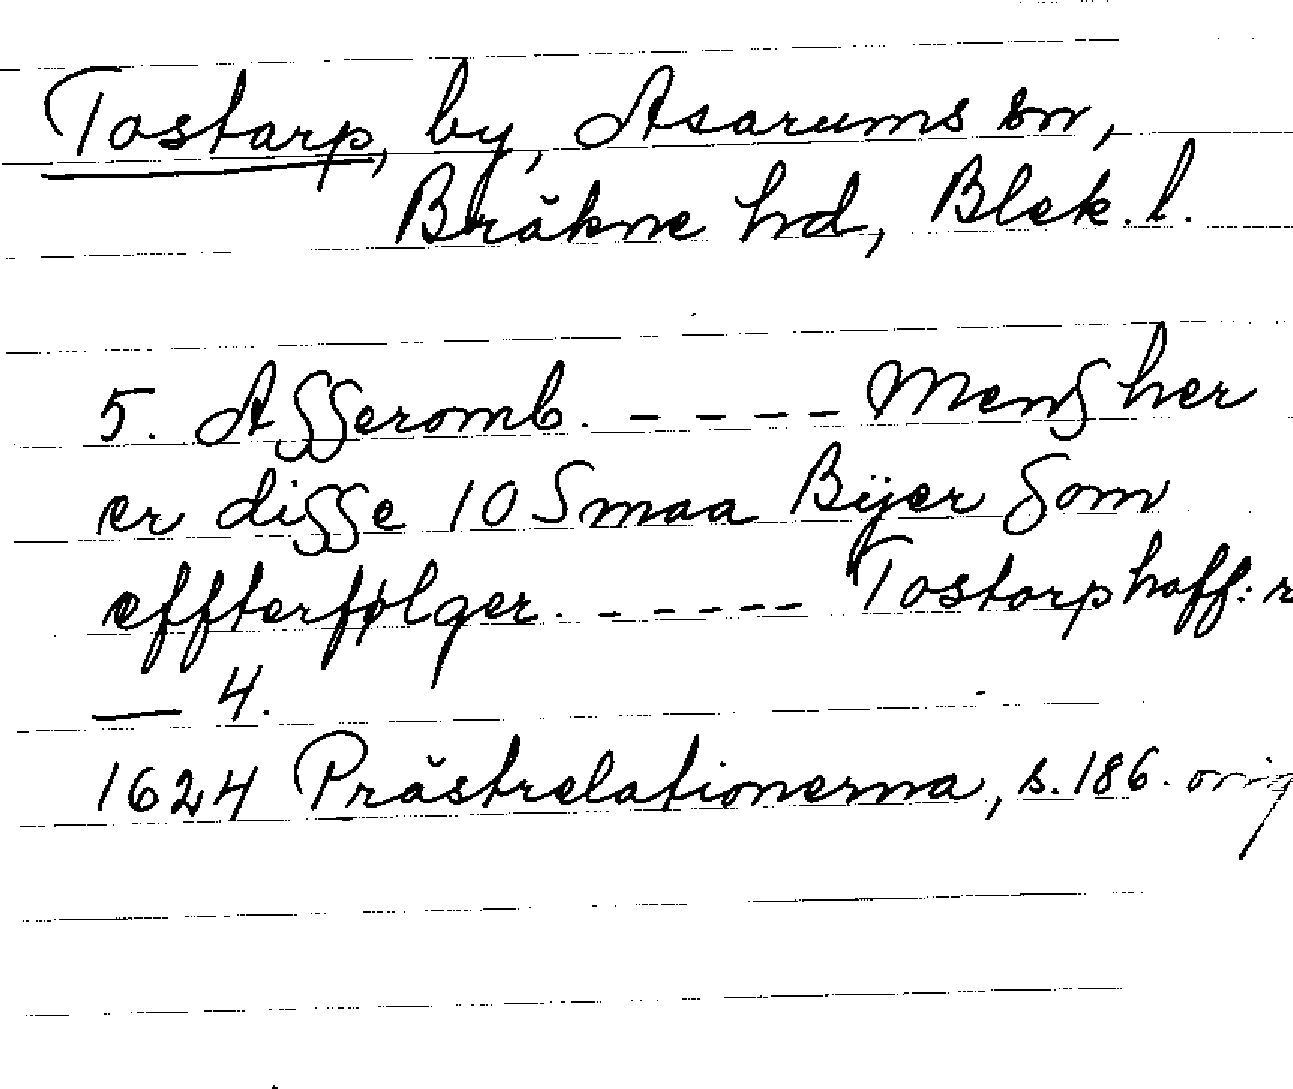 Tostarp, by, Asarums sn,
Bräkne hd, Blek. l.
5. Asseromb. - - - - Mens her
er disse 10 Smaa Bÿer Som
effterfølger. - - - - - Tostorp haff: r
— 4.
1624 Prästrelationerna, s. 186. orig